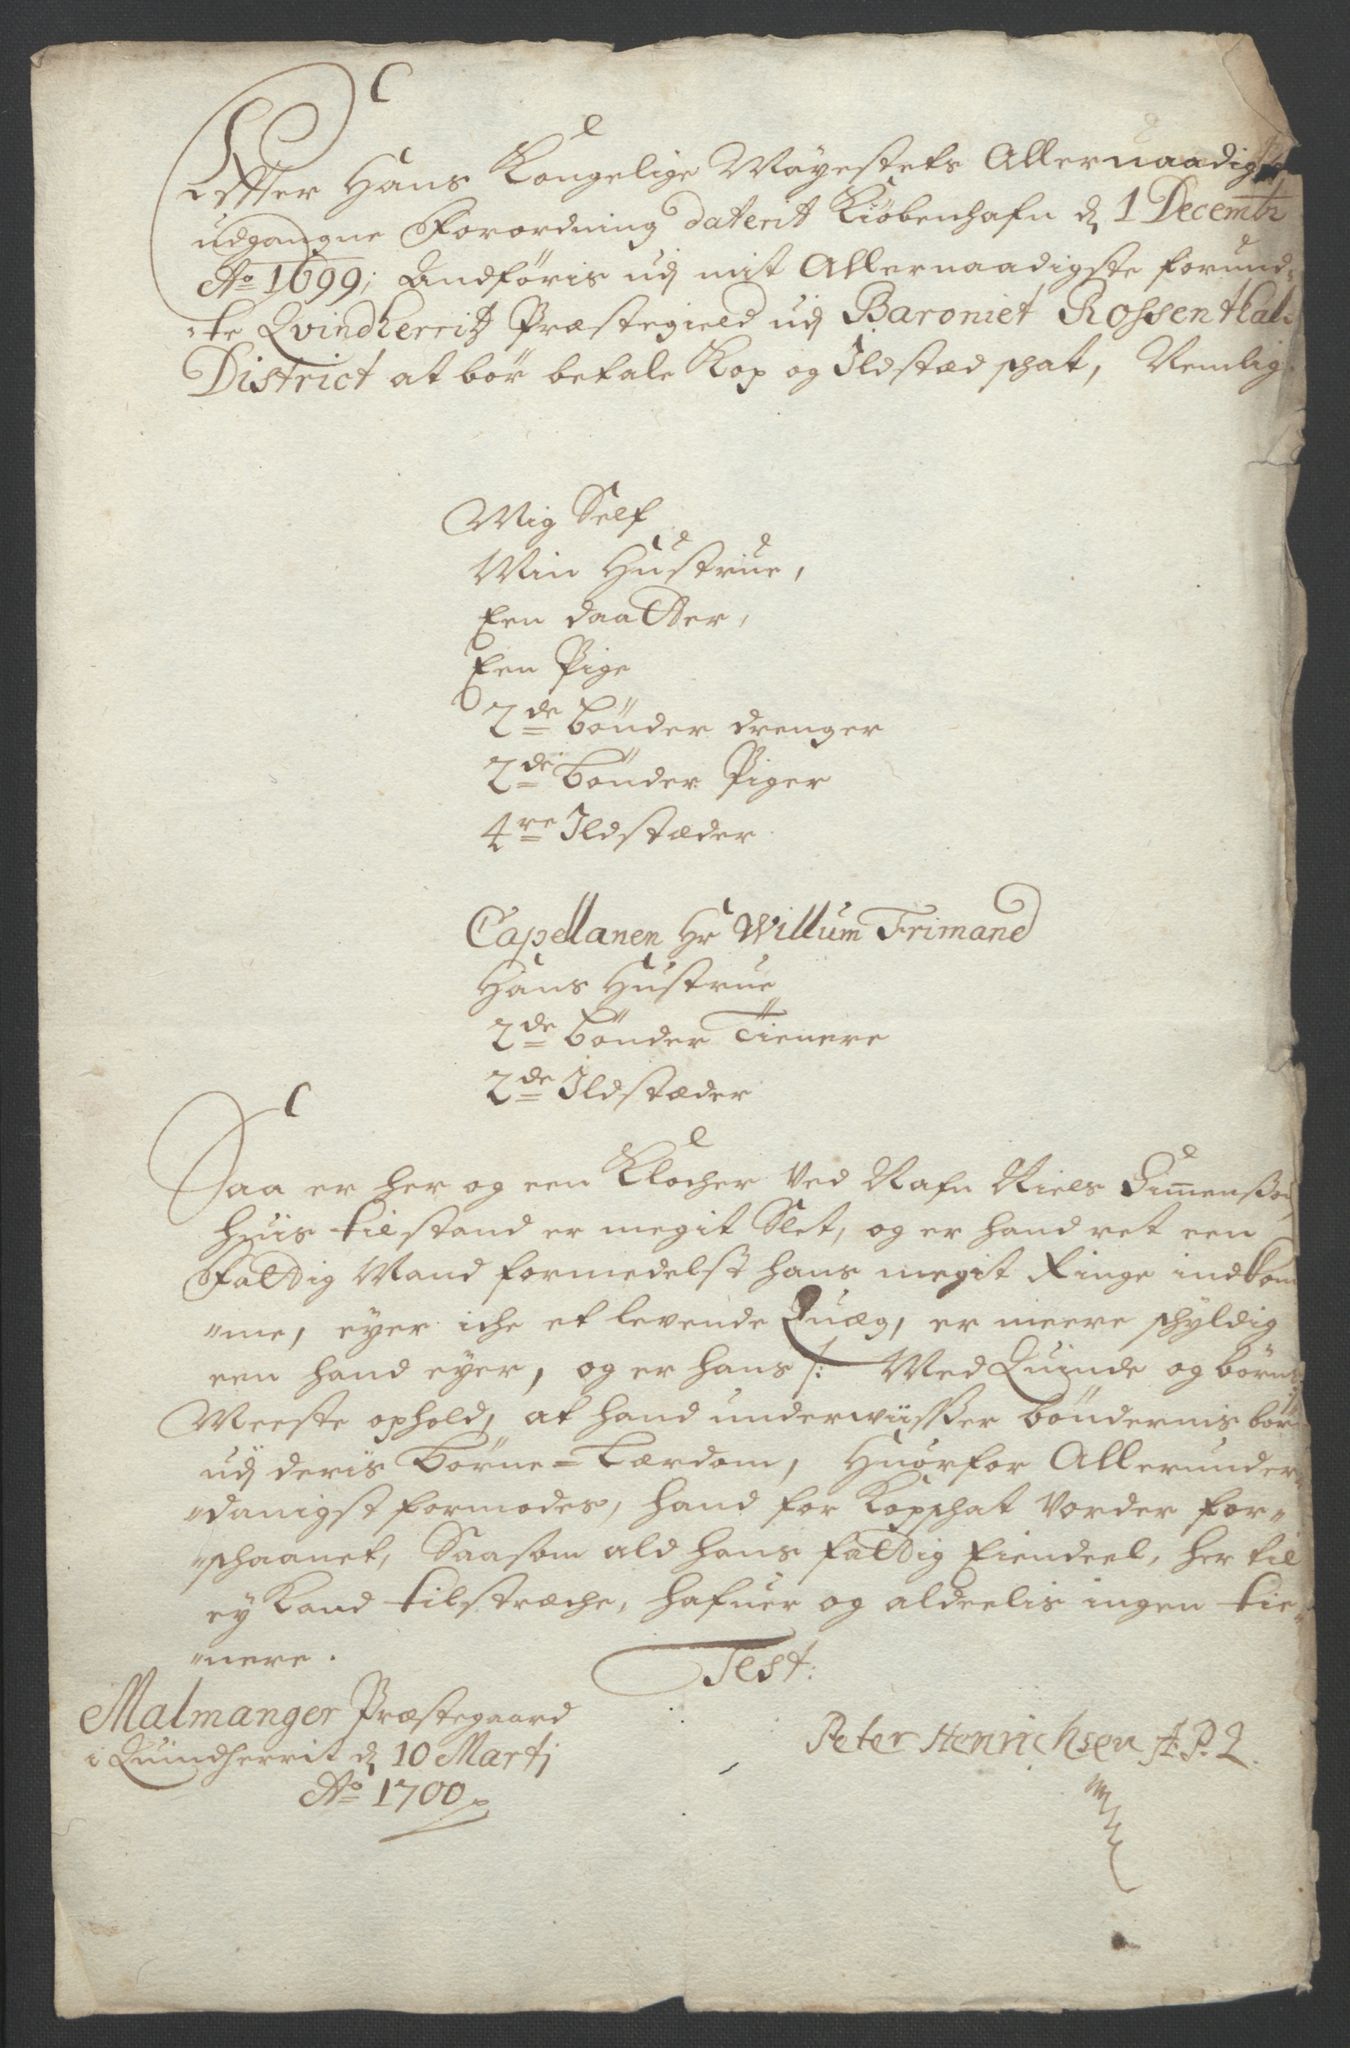 Effter Hans Kongelige Mayestets Allernaadigste
udgangne Forordning daterit Kiøbenhafn d 1 Decembr
Ao 1699; Andføris udj mit Allernaadigste forund=
=te Qvindherritz Præstegield udj Baroniet Rossenthals
District at bør betale Kop og Ildstæd schat, Nemlig
Mig Self
Min Hustrue,
Een daatter,
Een Pige
2de bønder drenger
2de bønder Piger
4re Ildstæder
Capellanen Hr Willum Frimand
Hans Hustrue
2de bønder Tienere
2de Ildstæder
Saa er her og een Klocher ved Nafn Niels Simensson
huis tilstand er megit Slet, og er hand ret een
Fattig Mand formedelst hans megit Ringe indkom
"me, eyer iche et levende Quæg, er meere schyldig
een hand eyer, og er hans /: Med Quinde og børns
Meeste ophold, at hand underwiisser bøndernis bør
udj deris Børne=Lærdom, Huorfor Allerunder=
"danigst formodes, hand for Kopschat vorder for="
"schaanet, Saasom ald hans fattig Eiendeel, her til
ey kand tilstræche, hafuer og aldeelis ingen tie=
"nere.
Test:
Malmanger Præstegaard
i Quindherrit d 10 Martj
Ao 1700
Peter Henrichsen